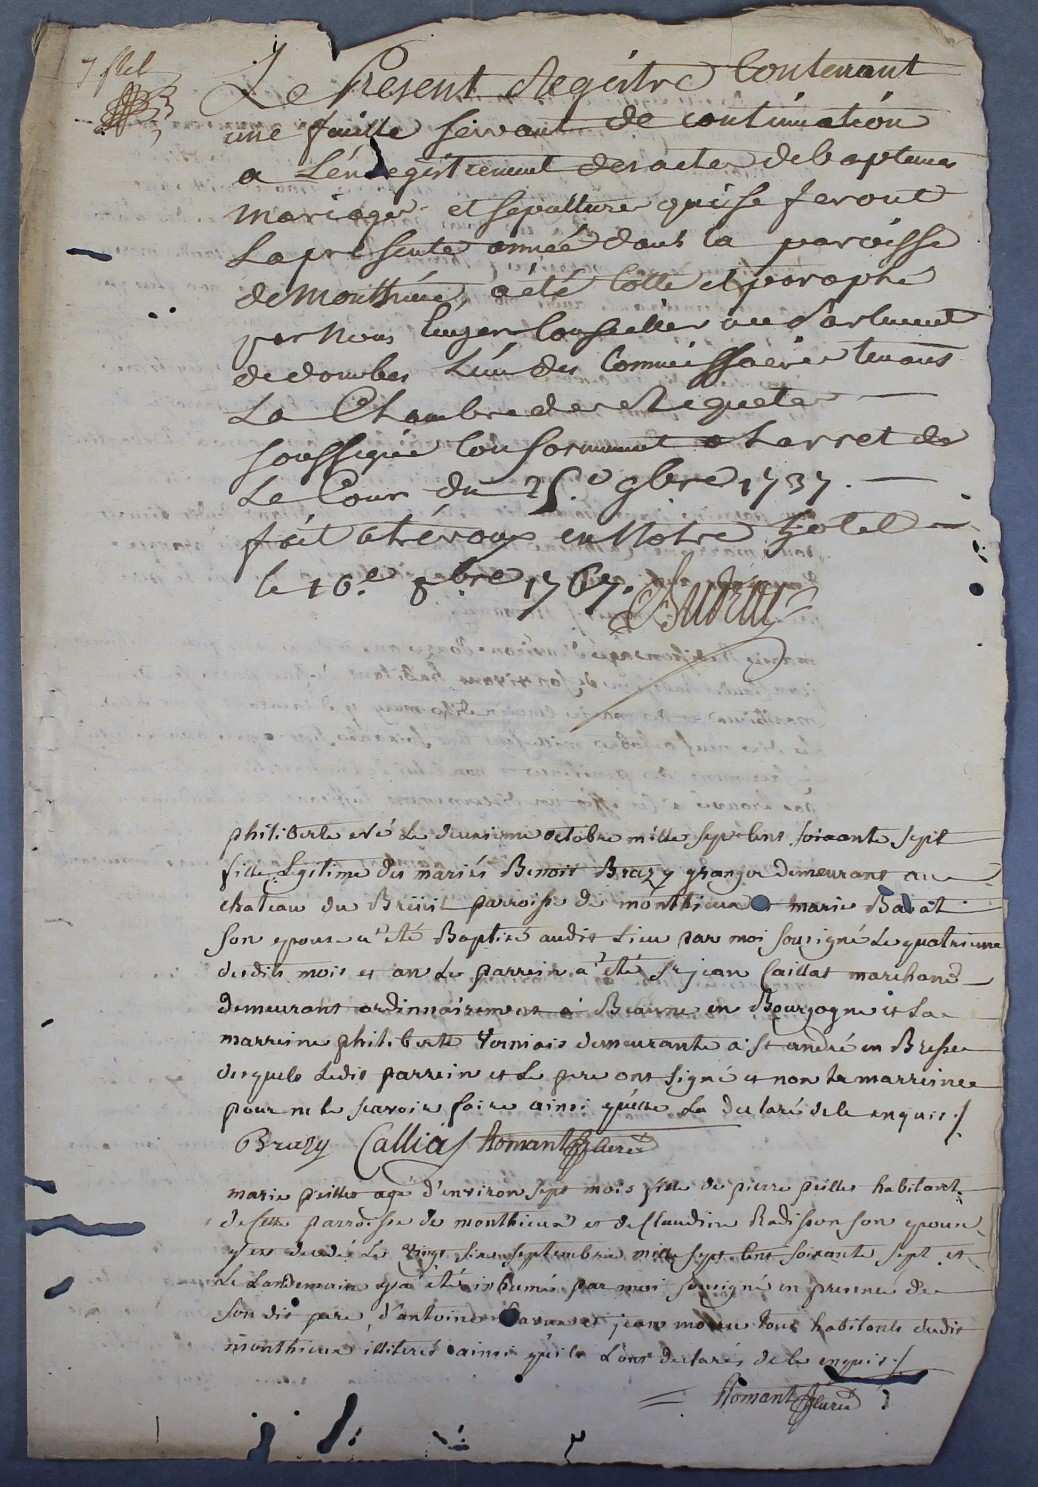 Le Present Registre Contenant
une feuille servant de continuation
a L'enregistrement des actes de baptemes
mariages et sepultures qui se feront
La presente année dans la paroisse
de Monthieux, a été Cotté et paraphé
par Nous Conseiller au Parlement
de dombes L'un des Commissaires tenans
La Chambre des Requetes
soussigné Conformement a L'arret de
La Cour du 25.e 9bre 1737.
fait a trévoux en Notre hotel
le 16.e 8.bre 1767.
philiberte née Le deuxieme octobre mille sept Cens soixante sept
fille Legitime des mariés Benoit Brazy granger demeurant au
chateau du Breüil parroisse de monthieux et marie Badat
son epouse a été Baptisé audit Lieu par moi sousigné Le quatrieme
desdits mois et an Le parrein a été Sr jean Caillat marchand
demeurant ordinnairement a Beaune en Bourgogne et La
marreine philiberte Verniais demeurante a St andré en Bresse
desquels Ledit parrein et Le pere ont signé et non La marreine
pour ne le scavoir faire ainsi qu'elle La declaré de le enquis ./
Brazy Callias Romant Curé
marie peillet agé d'environ sept mois fille de pierre peillet habitant
de cette parroisse de monthieux et de Claudine Radisson son epouse
y est decedé Le vingt six septembre mille sept Cens soixante sept et
Le Landemain y a été inhumé par moi sousigné en presence de
son dit pere, d'antoine et jean tous habitants dudit
monthieux illiteres ainsi qu'ils L'ont declarés de le enquis ./
Romant Curé